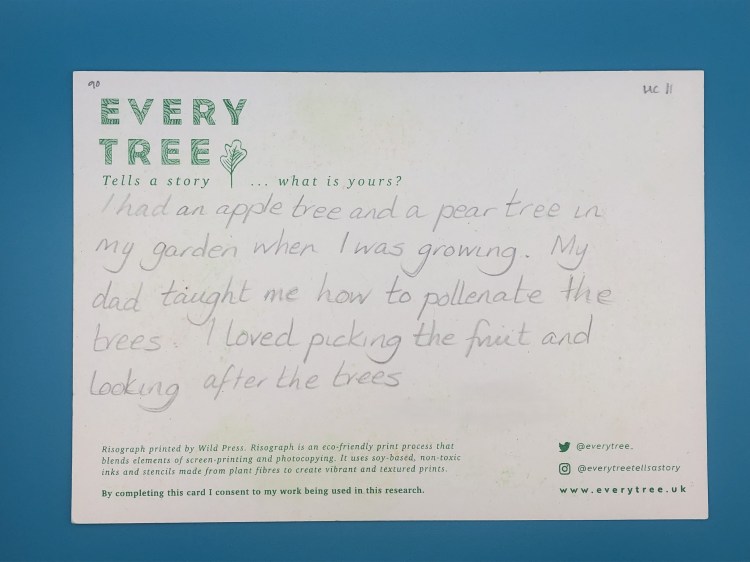 90
MC 11
EVERY
TREE
Tells a story ... what is yours?
I had an apple tree and a pear tree in
my garden when I was growing. My
dad taught me how to pollenate the
trees. I loved picking the fruit and
looking after the trees
Risograph printed by Wild Press. Risograph is an eco-friendly print process that
blends elements of screen-printing and photocopying. It uses soy-based, non-toxic
inks and stencils made from plant fibres to create vibrant and textured prints.
By completing this card I consent to my work being used in this research.
@everytree_
@everytreetellsastory
www.everytree.uk